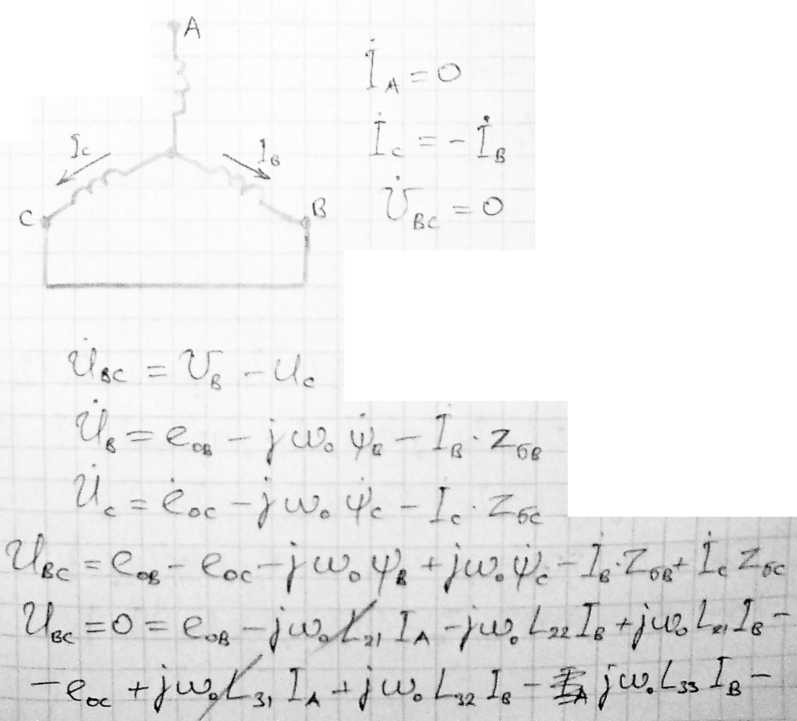 A
İ_A = 0
I_C I_B
İ_C = - İ_B
C B
U̇_BC = 0
U̇_BC = U_B - U_C
U̇_B = e_OB - jω₀ ψ̇_B - İ_B · Z_бB
U̇_C = ė_OC - jω₀ ψ̇_C - İ_C · Z_бC
U_BC = e_OB - e_OC - jω₀ ψ_B + jω₀ ψ̇_C - İ_B · Z_бB + İ_C Z_бC
U_BC = 0 = e_OB - jω₀ L₂₁ I_A - jω₀ L₂₂ I_B + jω₀ L₂₁ I_B -
- e_OC + jω₀ L₃₁ I_A + jω₀ L₃₂ I_B - jω₀ L₃₃ I_B -